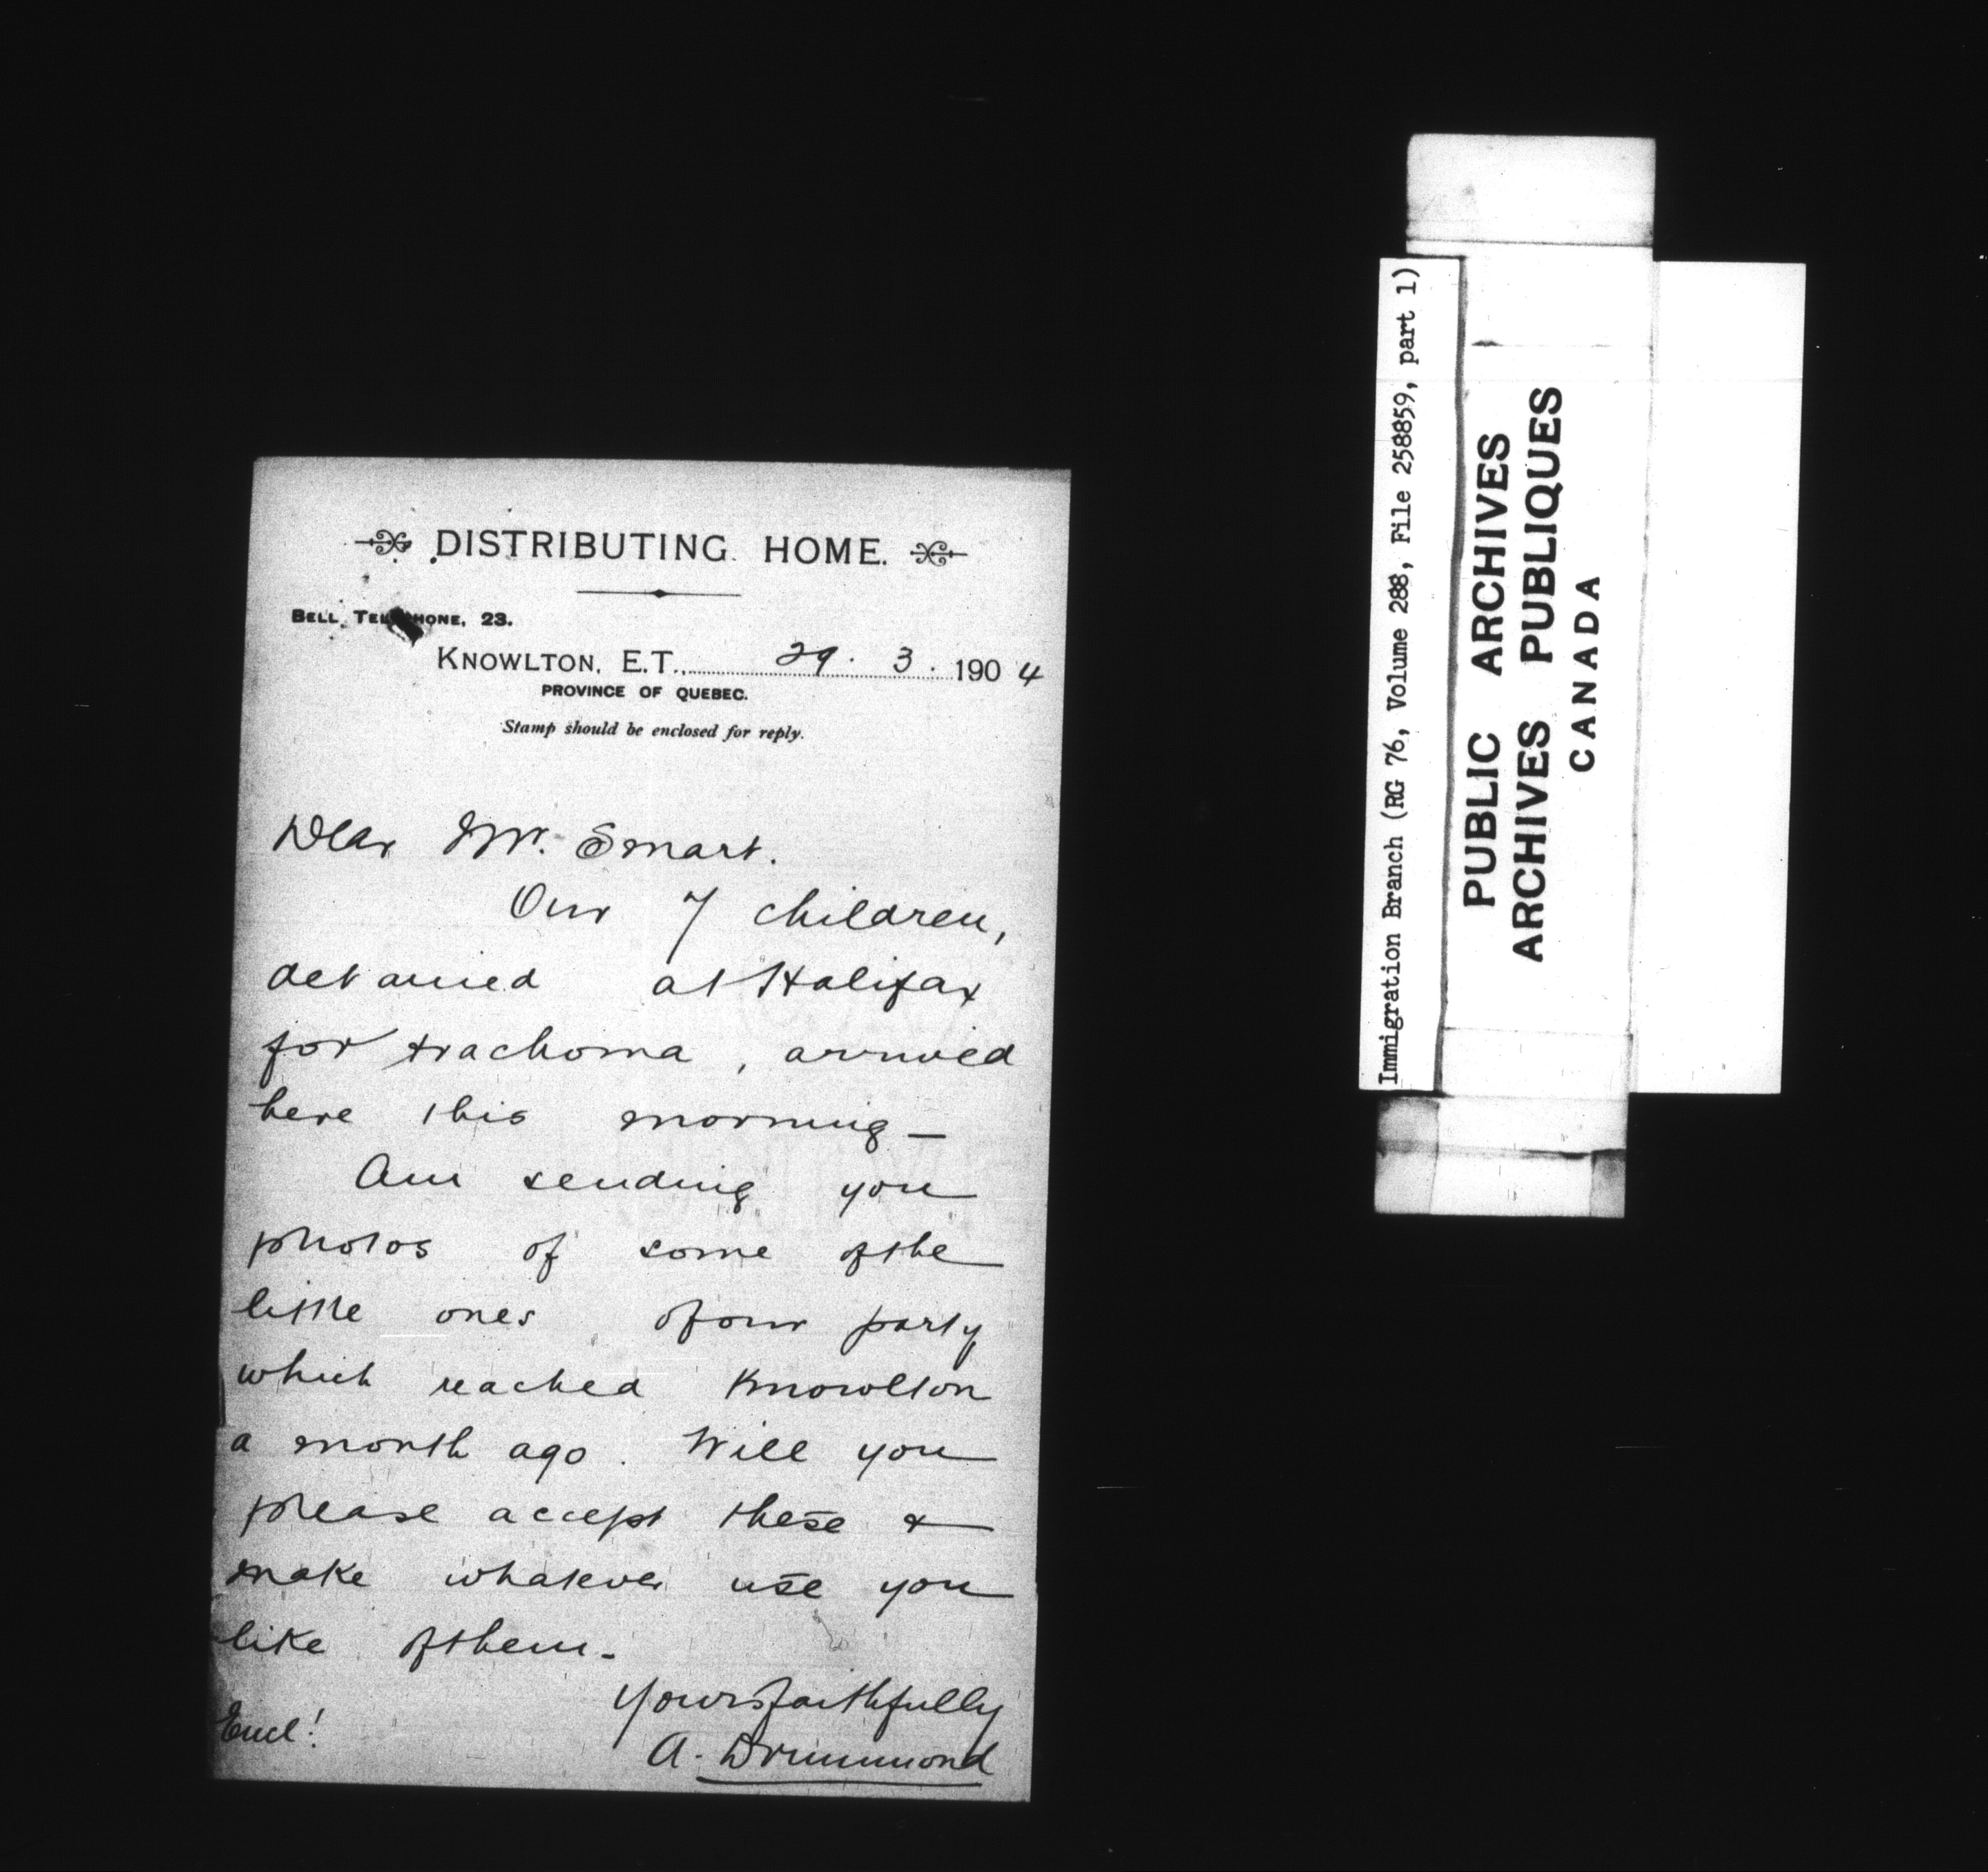 DISTRIBUTING HOME.
BELL TELEPHONE, 23.
KNOWLTON, E.T. 29. 3. 1904
PROVINCE OF QUEBEC.
Stamp should be enclosed for reply.
Dear Mr. Smart.
Our 7 children,
detained at Halifax
for trachoma, arrived
here this morning —
Am sending you
photos of some of the
little ones of our party
which reached Knowlton
a month ago. Will you
please accept these &
make whatever use you
like of them.
Yours faithfully
Encl!
A. Drummond
Immigration Branch (RG 76, Volume 288, File 258859, part 1)
PUBLIC ARCHIVES
ARCHIVES PUBLIQUES
CANADA